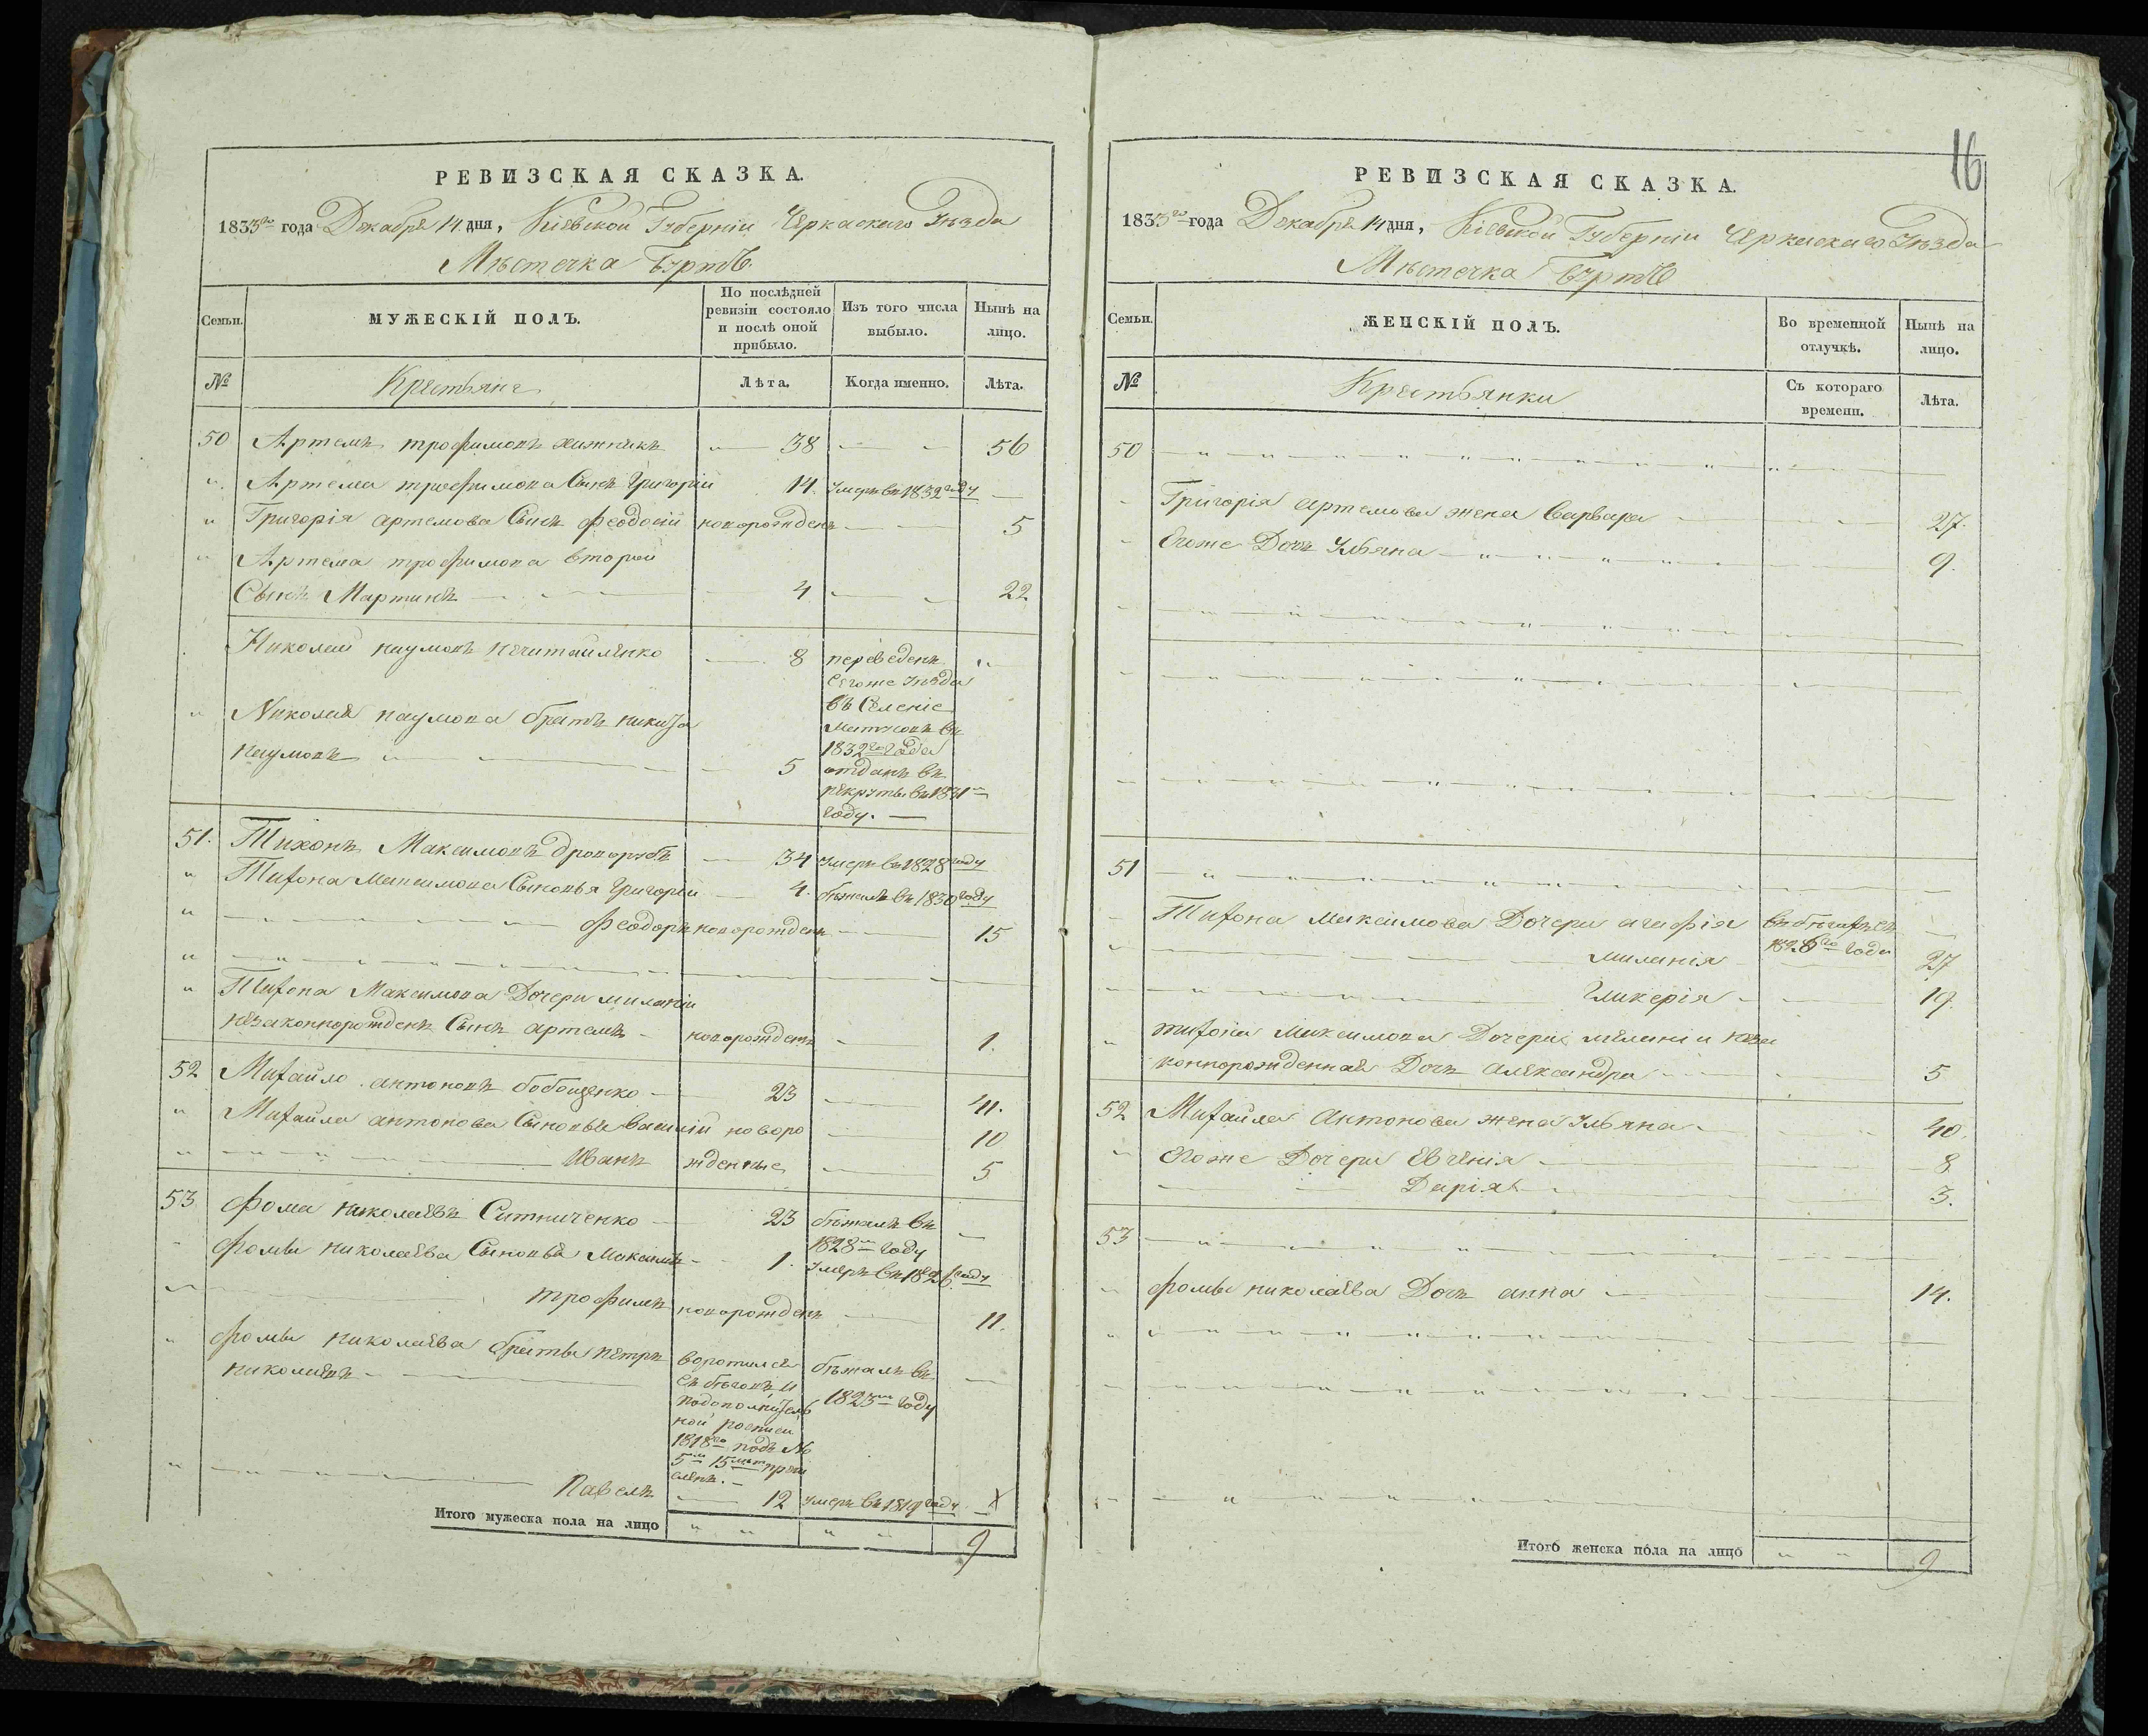 РЕВИЗСКАЯ СКАЗКА.
1833го года Декабря 14 дня, Кіевской Губерніи Черкаскаго Уѣзда
Мѣстечка
Семьи.
МУЖЕСКІЙ ПОЛЪ.
По послѣдней ревизіи состояло и послѣ оной прибыло.
Изъ того числа выбыло.
Нынѣ на лицо.
№
Крестьяне
Лѣта.
Когда именно.
Лѣта.
50 Артемъ трофимовъ 38 56
Артема трофимова Сынъ Григорій 14. умеръ въ 1832 году
Григорія артемова Сынъ феодосій новорожденъ 5
Артема трофимова второй
Сынъ Мартинъ 4 22
Николай наумовъ нечитайленко 8 переведенъ
тогоже уѣзда
въ Селеніе
въ
1832го года
Николая наумова братъ никита
наумовъ 5 отданъ въ
рекруты въ 1831м
году.
51. Тихонъ Максимовъ 34 умеръ въ 1828 году
Тихона Максимова Сыновья Григорій 4. бѣжалъ въ 1830 году
феодоръ новорожденъ 15
Тихона Максимова Дочери миланіи
незаконнорожденъ Сынъ артемъ новорожденъ 1.
52 Михайло антоновъ бобошенко 23 41.
Михайла антонова Сыновья василій новоро 10
Иванъ жденные 5
53 фома николаевъ Ситниченко 23 бѣжалъ въ
1828м году
фомы николаева Сыновья Максимъ 1. умеръ въ 1826 году
трофимъ новорожденъ 11.
фомы николаева братья петръ
николаевъ
воротился
съ бѣговъ и
подополнитель
ной росписи
1818го подъ №
5м 15 лѣтъ
бѣжалъ въ
1823м году
Павелъ 12 умеръ въ 1819 году
Итого мужеска пола на лицо 9
16
РЕВИЗСКАЯ СКАЗКА.
1833го года Декабря 14 дня, Кіевской Губерніи Черкаскаго Уѣзда
Мѣстечка
Семьи.
ЖЕНСКІЙ ПОЛЪ.
Во временной отлучкѣ.
Нынѣ на лицо.
№
Крестьянки
Съ котораго времени.
Лѣта.
50
Григорія артемова жена Варвара 27.
Егоже Дочь Ульяна 9.
51
Тихона максимова Дочери агафія въ бѣгахъ съ
1826го года
миланія 27
гликерія 19.
тихона максимова Дочери миланіи неза
коннорожденная Дочь александра 5
52 Михайла Антонова жена Ульяна 40.
Егоже Дочери Евгенія 8
Дарія 3.
53
фомы николаева Дочь анна 14.
Итого женска пола на лицо 9